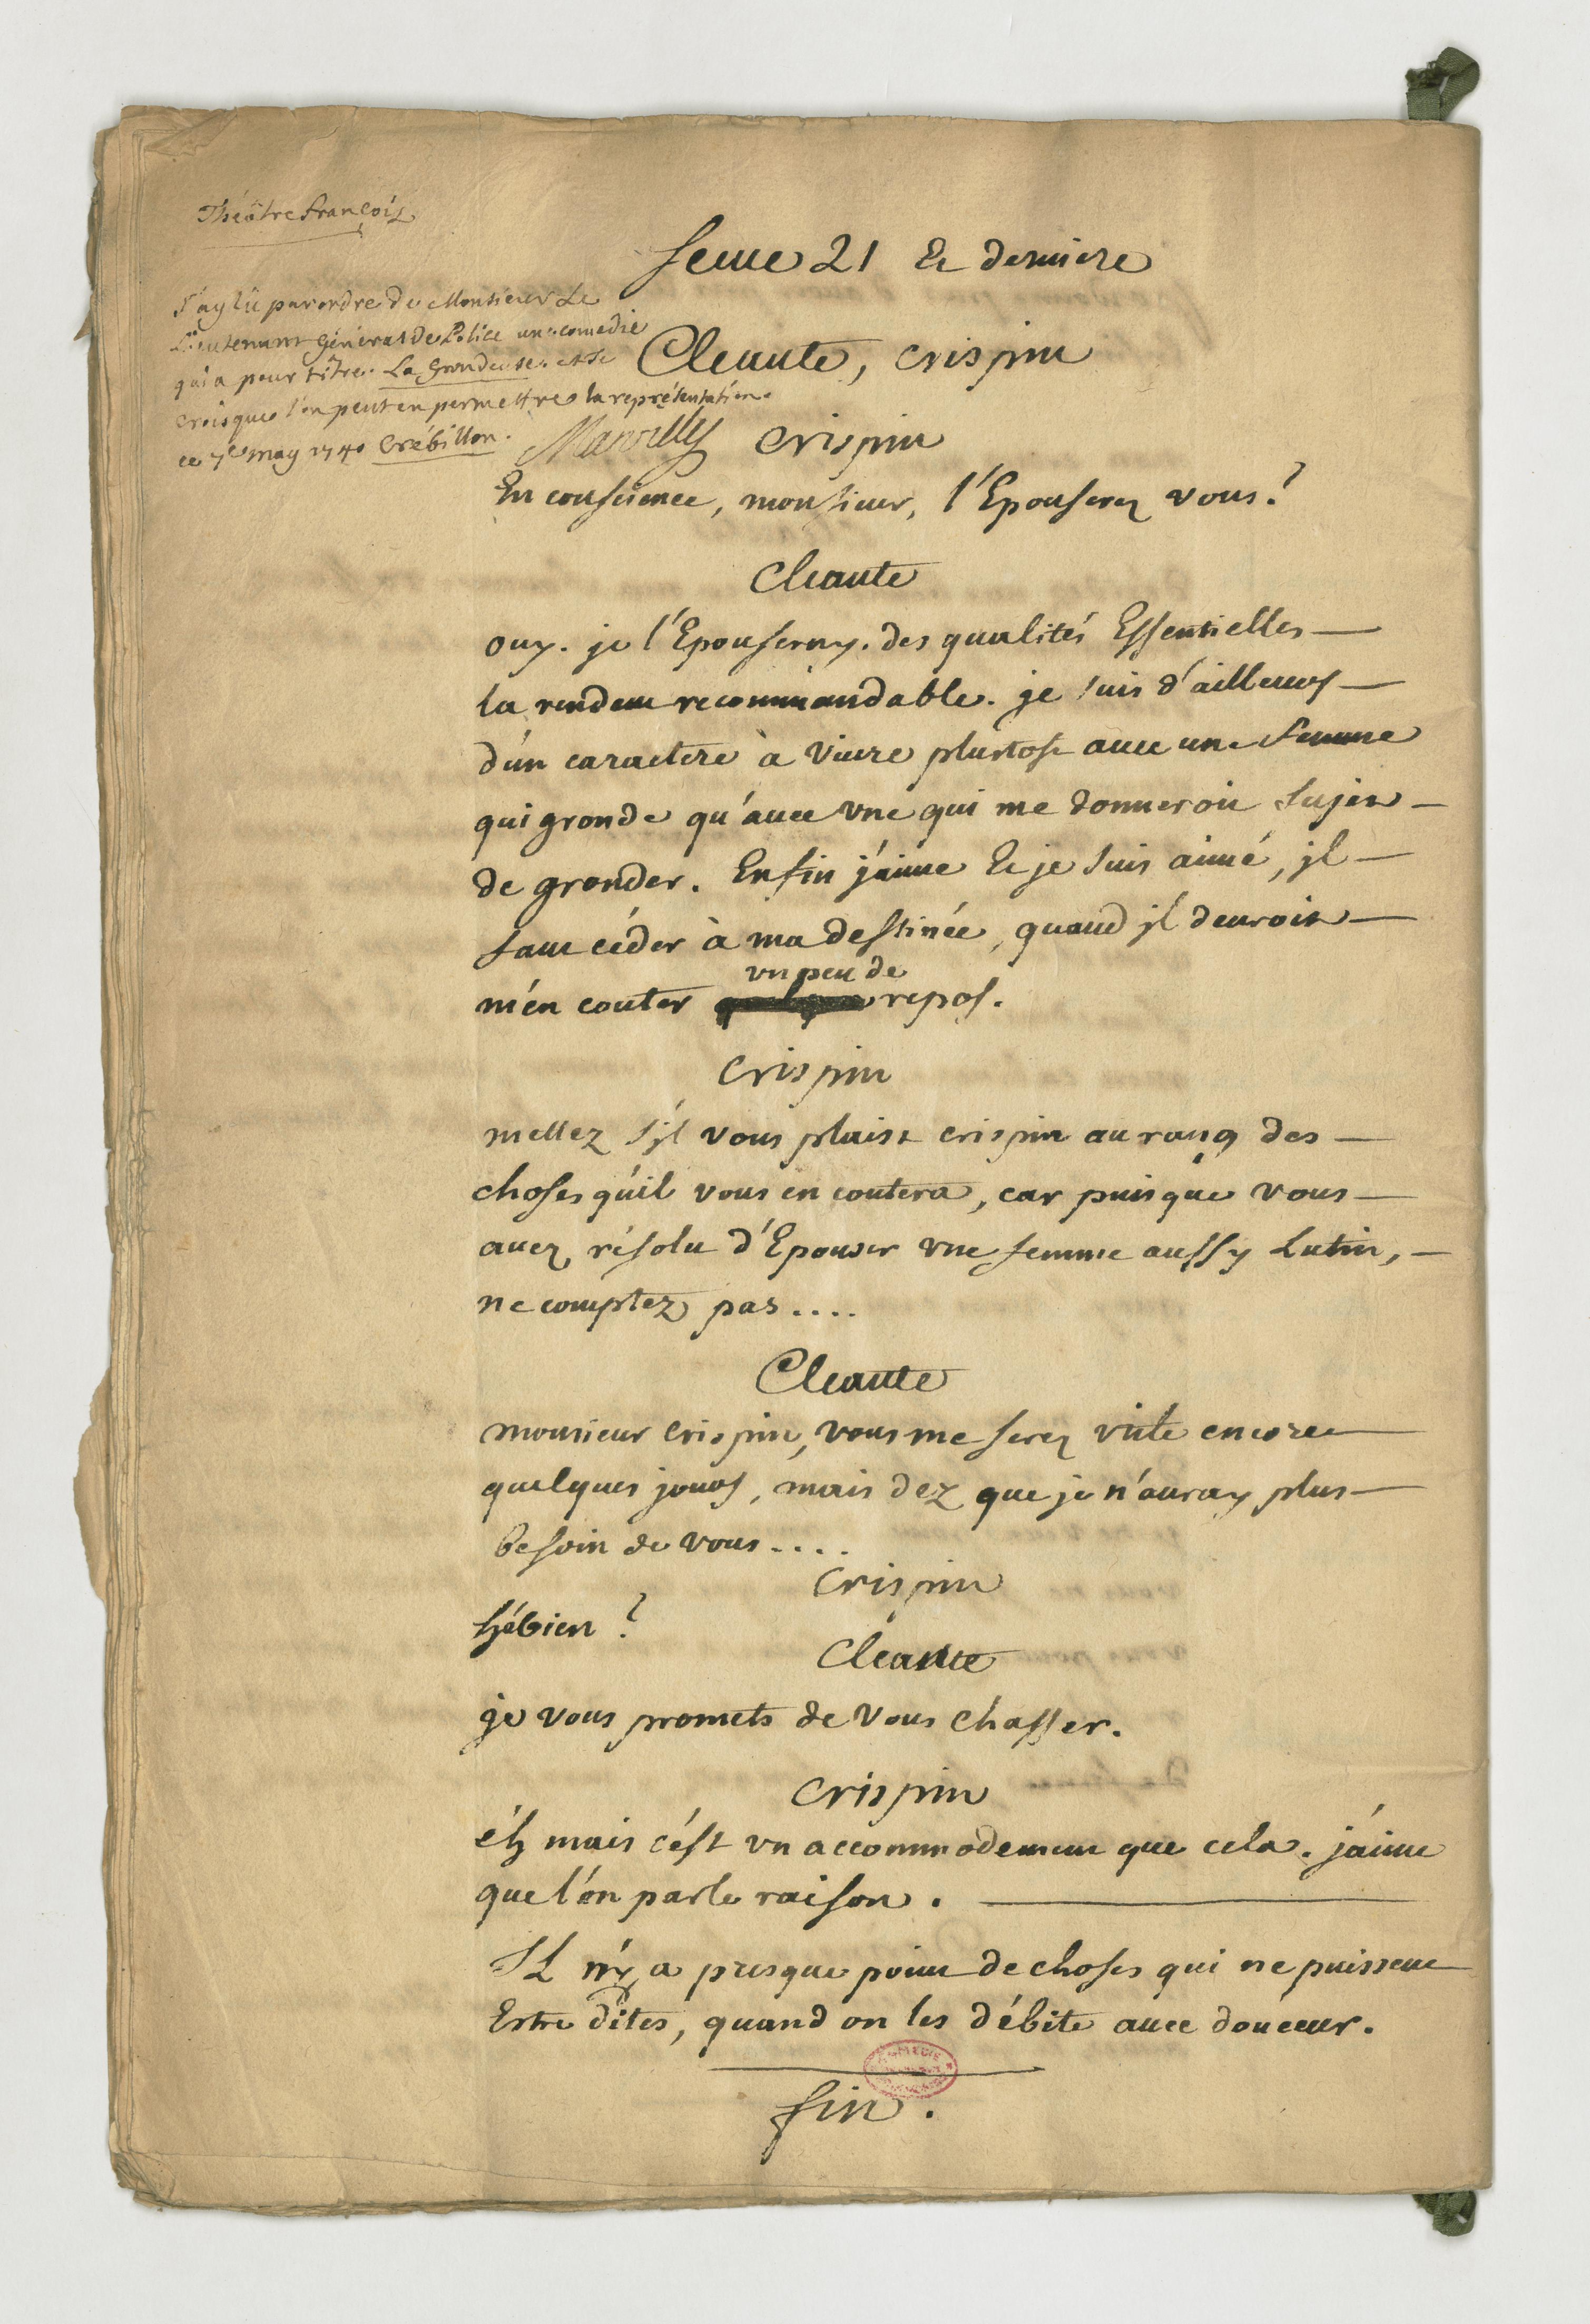 Théâtre françois
J'ay lû par ordre de Monsieur Le
Lieutenant Général de Police une comedie
qui a pour titre. La Grondeuse. et je
crois que l'on peut en permettre la représentation.
ce 7e may 1740 Crébillon.
Marville
Scene 21 Et derniere
Cleante, crispin
crispin
En conscience, monsieur, l'Epouserez vous?
Cleante
ouy. je l'Epouseray. des qualités Essentielles
la rendent recommandable. je suis d'ailleurs
d'un caractere à viure plustost auec une femme
qui gronde qu'auec vne qui me donneroit sujet
de gronder. Enfin j'aime Et je suis aimé, jl
faut céder à ma destinée, quand jl deuroit
m'en couter un peu de repos.
crispin
mettez s'jl vous plaist crispin au rang des
choses qu'il vous en coutera, car puis que vous
auez résolu d'Epouser vne femme aussy Lutin,
ne comptez pas....
Cleante
monsieur crispin, vous me serez vtile encore
quelques jours, mais dez que je n'auray plus
besoin de vous....
crispin
hébien?
Cleante
je vous promets de vous chasser.
crispin
éh mais c'est vn accommodement que cela. j'aime
que l'on parle raison.
Il n'y a presque point de choses qui ne puissent
Estre dites, quand on les débite auec douceur.
fin.